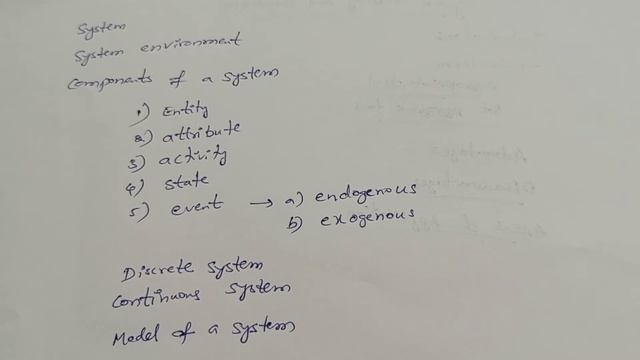 System
System environment
Components of a system
1) Entity
2) attribute
3) activity
4) state
5) event → a) endogenous
b) exogenous
Discrete system
Continuous system
Model of a system